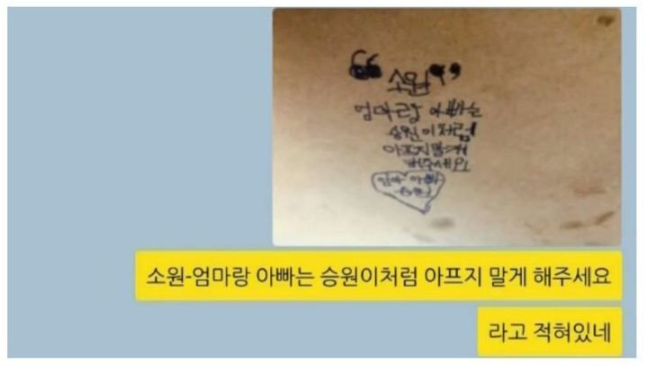 ❝소원❞
엄마랑 아빠는
승원이처럼
아프지말게
해주세요
엄마 아빠
승원
소원-엄마랑 아빠는 승원이처럼 아프지 말게 해주세요
라고 적혀있네